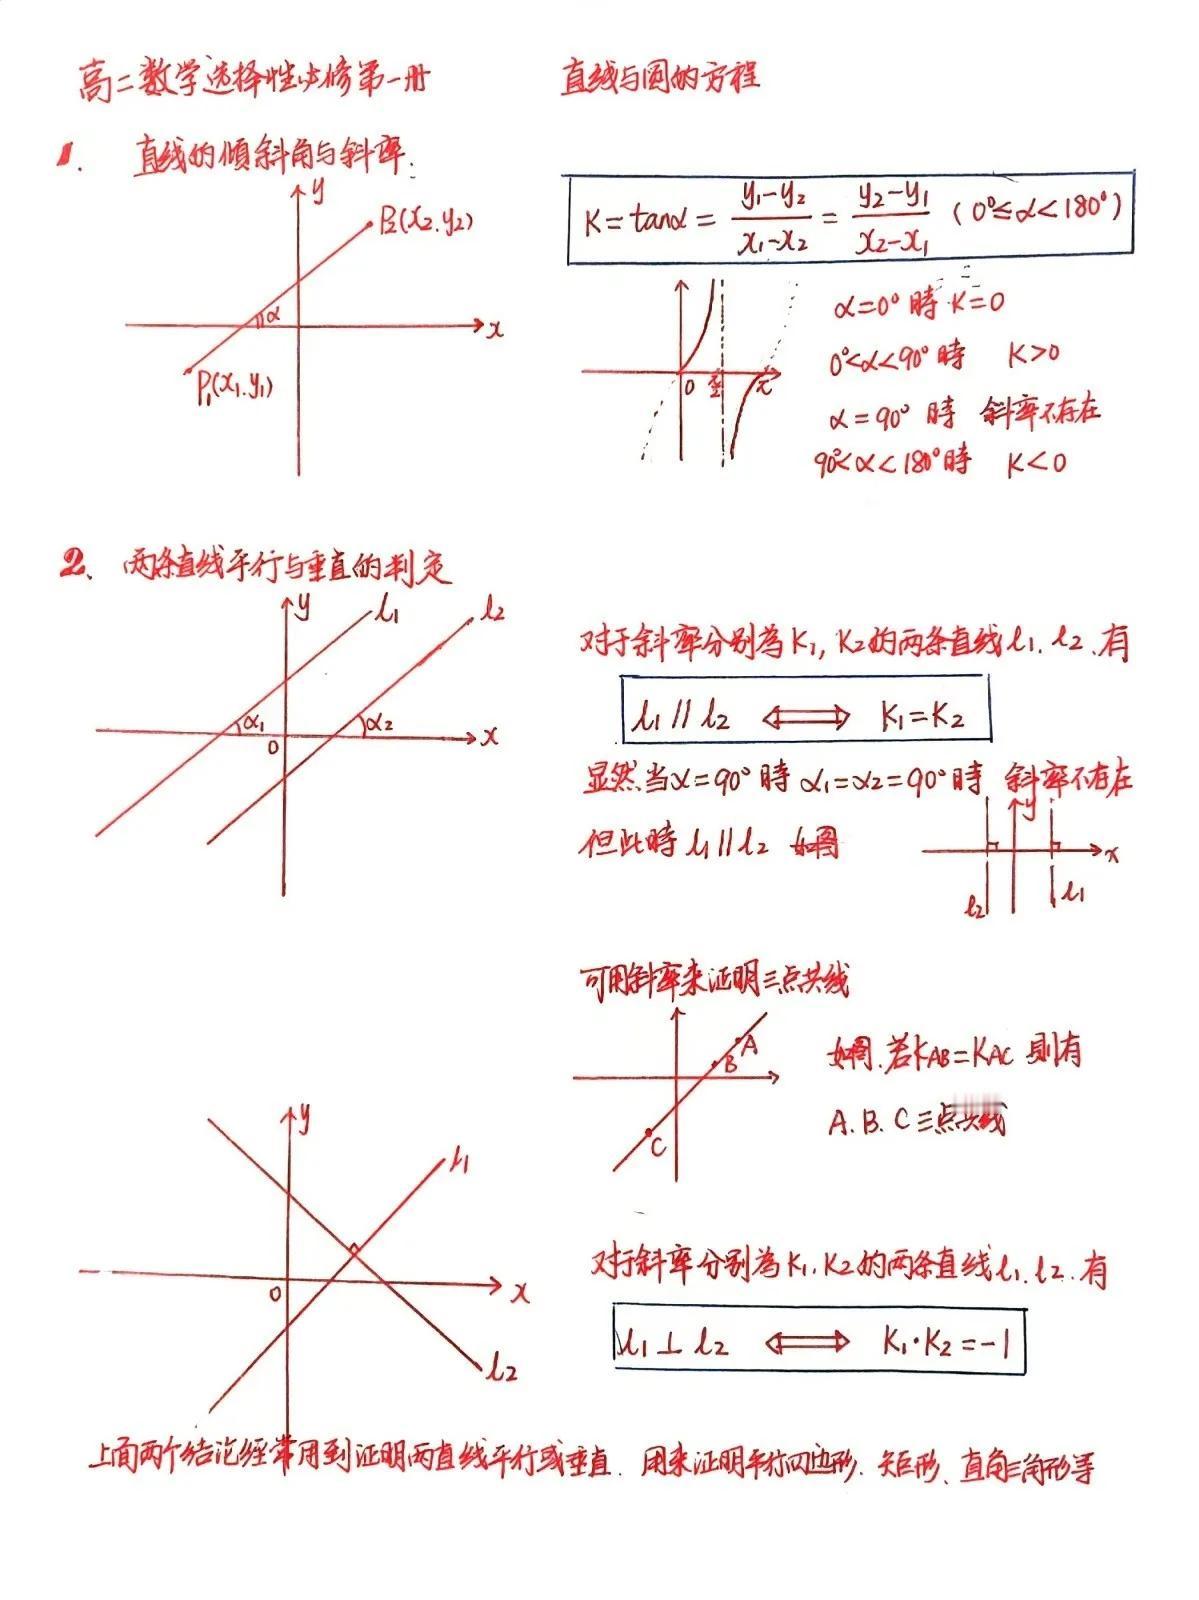 高二数学选择性必修第一册 直线与圆的方程
1. 直线的倾斜角与斜率:
y
P2(x2.y2)
α
x
P1(x1.y1)
K=tanα= y1-y2/x1-x2 = y2-y1/x2-x1 (0°≤α<180°)
0 π/2 π
α=0°時 K=0
0°<α<90°時 K>0
α=90°時 斜率不存在
90°<α<180°時 K<0
2、两条直线平行与垂直的判定
y l1 l2
α1 α2
0 x
对于斜率分别為K1,K2的两条直线l1.l2.有
l1∥l2 ⟺ K1=K2
显然当α=90°時 α1=α2=90°時 斜率不存在
但此時 l1∥l2 如图
y
x
l2 l1
可用斜率来证明三点共线
A
B
C
如图.若KAB=KAC 则有
A.B.C三点共线
y
l1
0 x
l2
对于斜率分别為K1.K2的两条直线l1.l2.有
l1⊥l2 ⟺ K1·K2=-1
上面两个结论经常用到证明两直线平行或垂直.用来证明平行四边形.矩形、直角三角形等